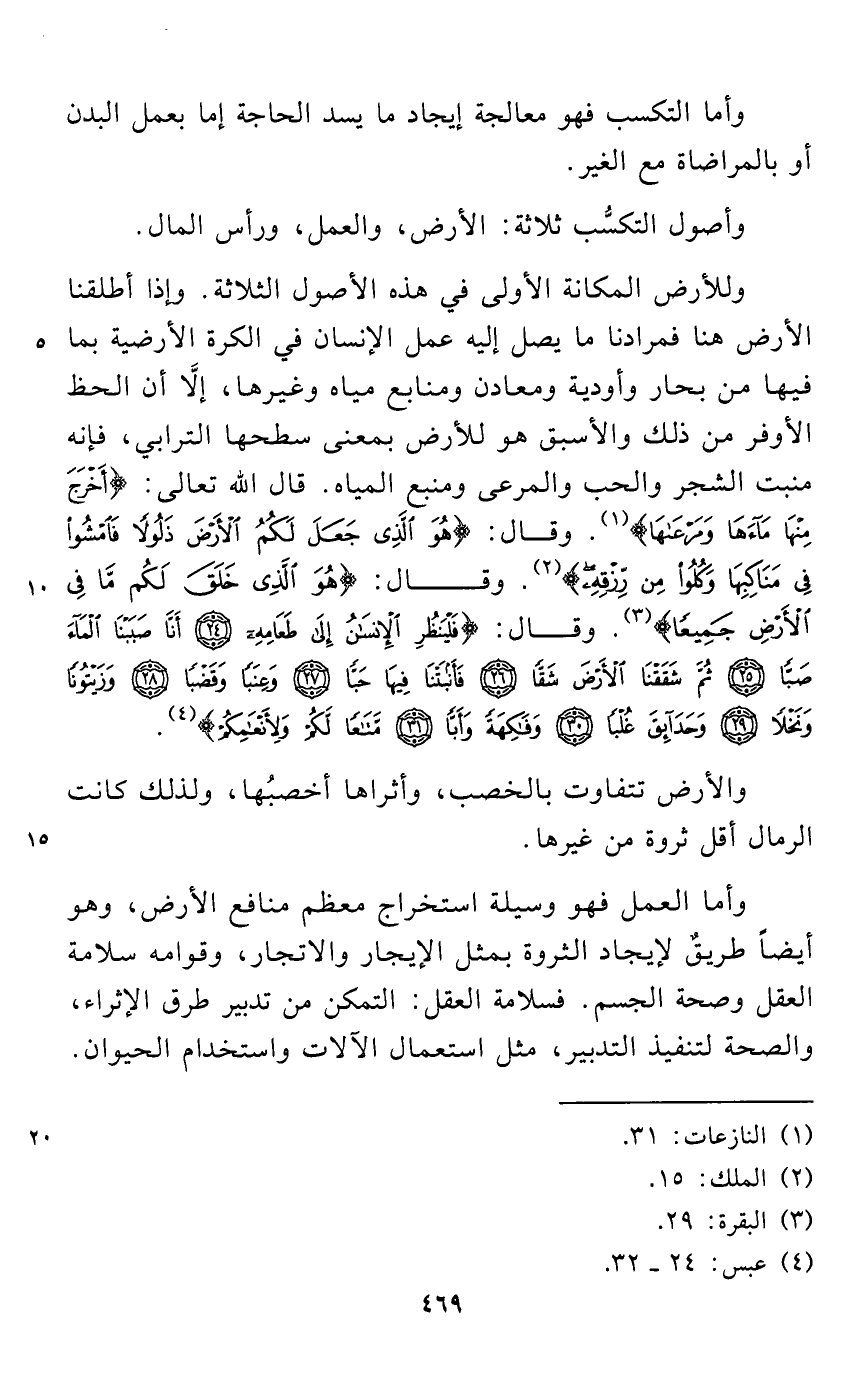 وأما التكسب فهو معالجة إيجاد ما يسد الحاجة إما بعمل البدن
أو بالمراضاة مع الغير.
وأصول التكسُّب ثلاثة: الأرض، والعمل، ورأس المال.
وللأرض المكانة الأولى في هذه الأصول الثلاثة. وإذا أطلقنا
الأرض هنا فمرادنا ما يصل إليه عمل الإنسان في الكرة الأرضية بما ٥
فيها من بحار وأودية ومعادن ومنابع مياه وغيرها، إلَّا أن الحظ
الأوفر من ذلك والأسبق هو للأرض بمعنى سطحها الترابي، فإنه
منبت الشجر والحب والمرعى ومنبع المياه. قال الله تعالى: ﴿أَخْرَجَ
مِنْهَا مَآءَهَا وَمَرْعَىٰهَا﴾(١). وقال: ﴿هُوَ ٱلَّذِى جَعَلَ لَكُمُ ٱلْأَرْضَ ذَلُولًا فَٱمْشُوا۟
فِى مَنَاكِبِهَا وَكُلُوا۟ مِن رِّزْقِهِۦۖ﴾(٢). وقال: ﴿هُوَ ٱلَّذِى خَلَقَ لَكُم مَّا فِى ١٠
ٱلْأَرْضِ جَمِيعًا﴾(٣). وقال: ﴿فَلْيَنظُرِ ٱلْإِنسَٰنُ إِلَىٰ طَعَامِهِۦٓ ٢٤ أَنَّا صَبَبْنَا ٱلْمَآءَ
صَبًّا ٢٥ ثُمَّ شَقَقْنَا ٱلْأَرْضَ شَقًّا ٢٦ فَأَنۢبَتْنَا فِيهَا حَبًّا ٢٧ وَعِنَبًا وَقَضْبًا ٢٨ وَزَيْتُونًا
وَنَخْلًا ٢٩ وَحَدَآئِقَ غُلْبًا ٣٠ وَفَٰكِهَةً وَأَبًّا ٣١ مَّتَٰعًا لَّكُمْ وَلِأَنْعَٰمِكُمْ﴾(٤).
والأرض تتفاوت بالخصب، وأثراها أخصبُها، ولذلك كانت
الرمال أقل ثروة من غيرها. ١٥
وأما العمل فهو وسيلة استخراج معظم منافع الأرض، وهو
أيضاً طريقٌ لإيجاد الثروة بمثل الإيجار والاتجار، وقوامه سلامة
العقل وصحة الجسم. فسلامة العقل: التمكن من تدبير طرق الإثراء،
والصحة لتنفيذ التدبير، مثل استعمال الآلات واستخدام الحيوان.
(١) النازعات: ٣١. ٢٠
(٢) الملك: ١٥.
(٣) البقرة: ٢٩.
(٤) عبس: ٢٤ ـ ٣٢.
٤٦٩